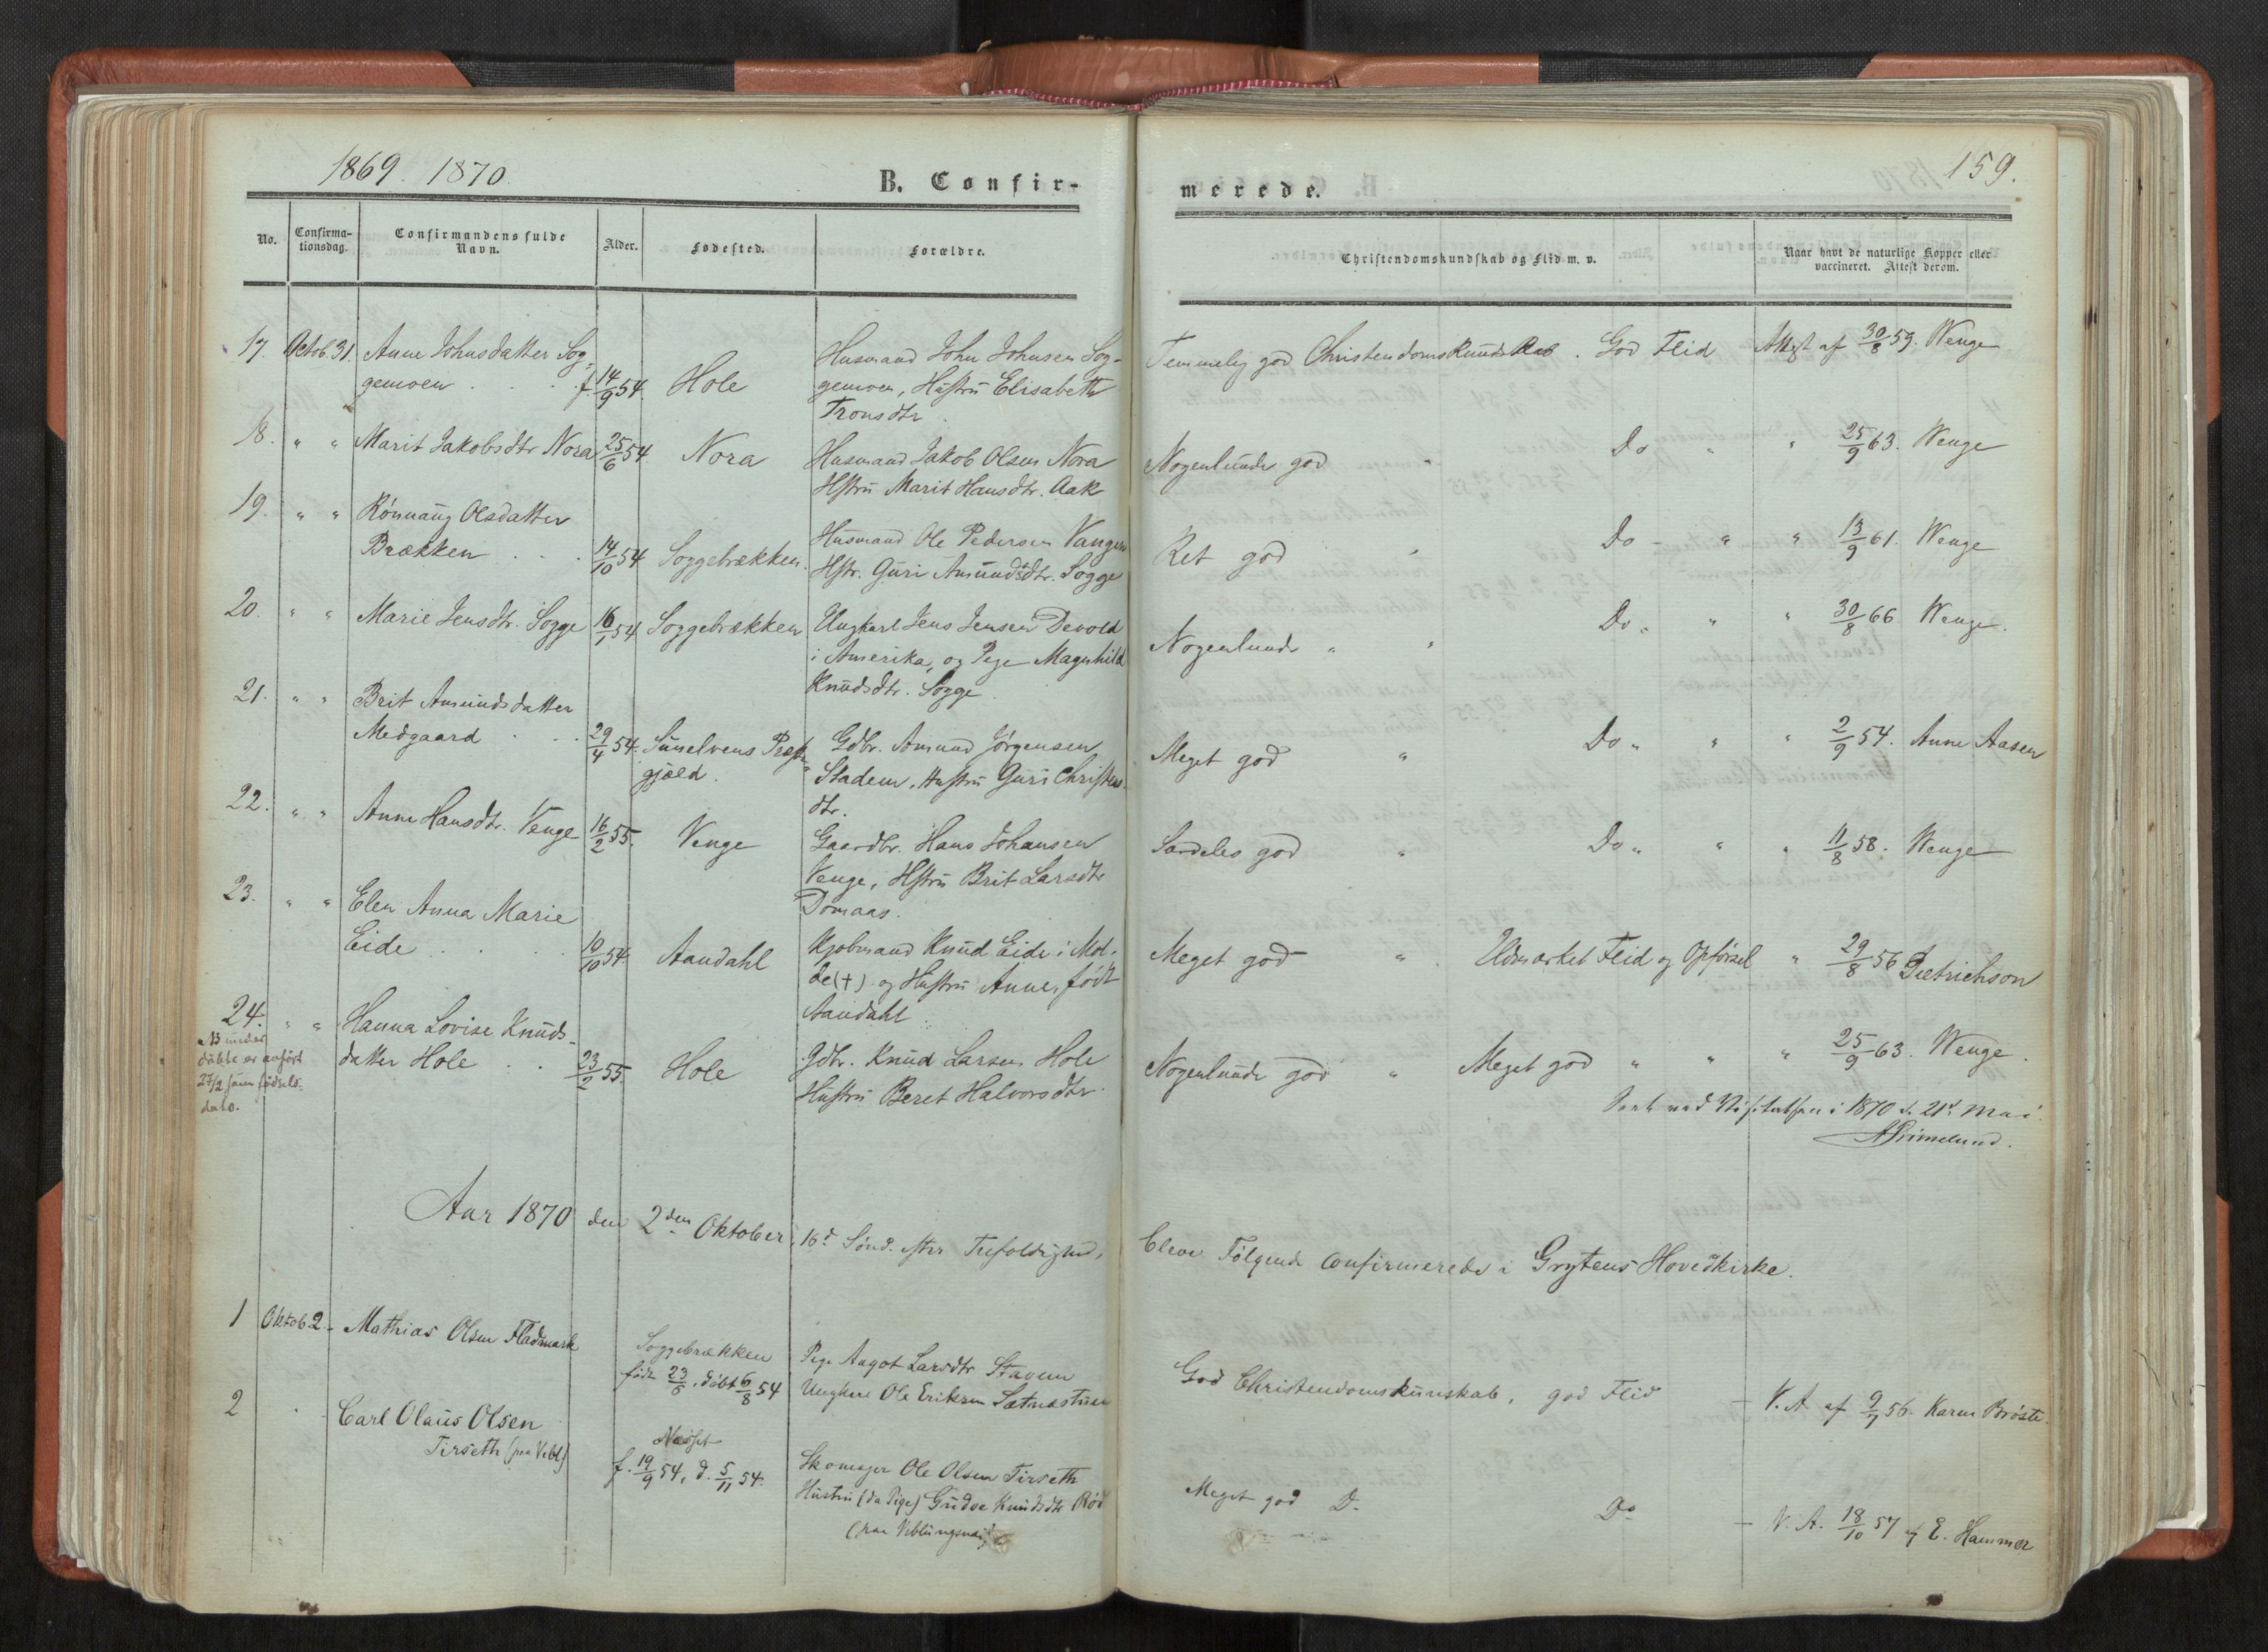 1869. 1870.
B. Confir-
No.
Confirma-
tionsdag.
Confirmandens fulde
Navn.
Alder.
Fødested.
Forældre.
17. Octob. 31. Anne Johnsdatter Sog-
gemoen . . . f. 14/9 54. Hole
Husmand John Johnsen Sog-
gemoen, Hustru Elisabeth
Tronsdtr.
18. " " Marit Jakobsdtr Nora 25/6 54. Nora
Husmand Jakob Olsen Nora
Hstru Marit Hansdtr. Aak
19. " " Rønnaug Olsdatter
Brækken . . . 14/10 54 Soggebrækken.
Husmand Ole Pedersen Vangen
Hstr. Guri Amundsdtr. Sogge
20. " " Marie Jensdtr. Sogge 16/1 54 Soggebrækken
Ungkarl Jens Jensen Devold
i Amerika, og Pige Magnhild
Knudsdtr. Sogge.
21. " " Brit Amundsdatter
Medgaard . . . 29/4 54. Sunelvens Præste-
gjæld.
Gdbr. Amund Jørgensen
Stadem, Hustru Guri Christens-
dtr.
22. " " Anne Hansdtr. Venge 16/2 55. Venge
Gaardbr. Hans Johansen
Venge, Hstru Brit Larsdtr
Domaas.
23. " " Elen Anna Marie
Eide . . . 10/10 54 Aandahl
Kjøbmand Knud Eide i Mol-
de (+) og Hustru Anne, født
Aandahl.
24. " " Hanna Lovise Knuds-
datter Hole . . 23/2 55. Hole
NB under
døbte er anført
27/2 som fødsels-
dato.
Gdbr. Knud Larsen Hole
Hustru Beret Halvorsdtr.
Aar 1870 den 2den Oktober, 16d Sønd. efter Trefoldighed,
1 Oktob 2. Mathias Olsen Fladmark
Soggebrækken
født 23/6, døbt 6/8 54
Pige Aagot Larsdtr Staven
Ungkarl Ole Eriksen Sætnæstuen
2 " Carl Olaus Olsen
Tirseth (paa Vebl)
Nesset
f. 19/9 54, d. 5/11 54.
Skomager Ole Olsen Tirseth
Hustru (da Pige) Gudve Knudsdtr Rød
(paa Veblungsnæs)
159.
merede.
Christendomskundskab og Flid m. v.
Naar havt de naturlige Kopper eller
vaccineret. Attest derom.
Temmelig god Christendomskundskab. God Flid Attest af 30/8 59. Wenge
Nogenlunde god " Do " " 25/9 63. Wenge
Ret god " Do - " " 13/9 61. Wenge
Nogenlunde " " Do " " " 30/8 66 Wenge.
Meget god " Do " " " 2/9 54. Anne Aasen
Særdeles god " Do " " " 11/8 58. Wenge
Meget god " Udmærket Flid og Opførsel " 29/8 56 Dietrichson
Nogenlunde god " Meget god " " " 25/9 63. Wenge.
Seet ved Visitatsen i 1870 d. 21d Mai.
AGrimelund.
bleve Følgende confirmerede i Grytens Hovedkirke.
God Christendomskunskab, god Flid — V. A. af 9/7 56. Karen Brøste.
Meget god Do Do — V. A. 18/10 57 af E. Hammer